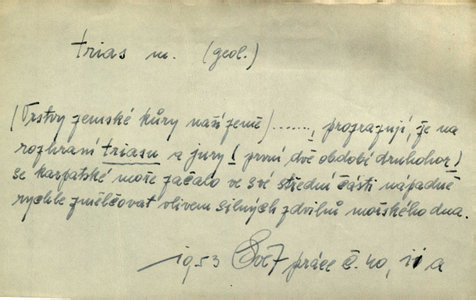 trias m. (geol.)
(Vrstvy zemské kůry naší země) ......, prozrazují, že na
rozhraní triasu a jury (první dvě období druhohor)
se karpatské moře začalo ve své střední části nápadně
rychle změlčovat vlivem silných zdvihů mořského dna.
1953 práce č. 40, a